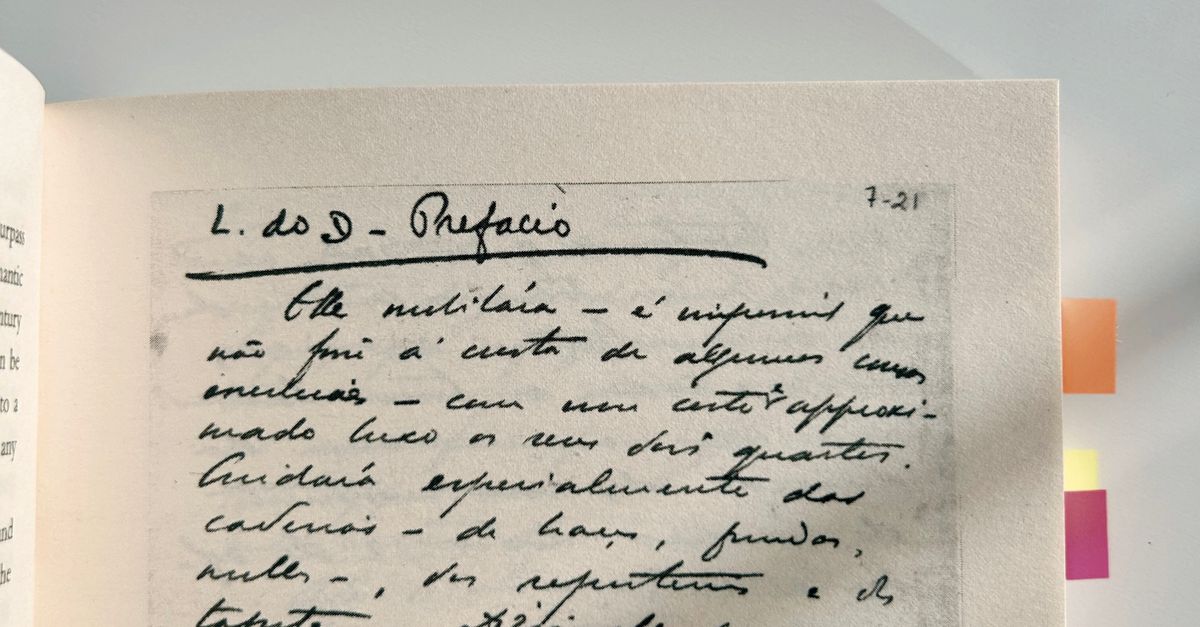 urpass
mantic
ntury
n be
to a
any
and
he
7-21
L. do D - Prefacio
Elle mobilára – é impossivel que
não fosse á custa de algumas cousas
essenciaes – com um certo e approxi-
mado luxo os seus dois quartos.
Cuidará especialmente das
cadeiras – de braços, fundas,
molles –, dos reposteiros e dos
tapetes